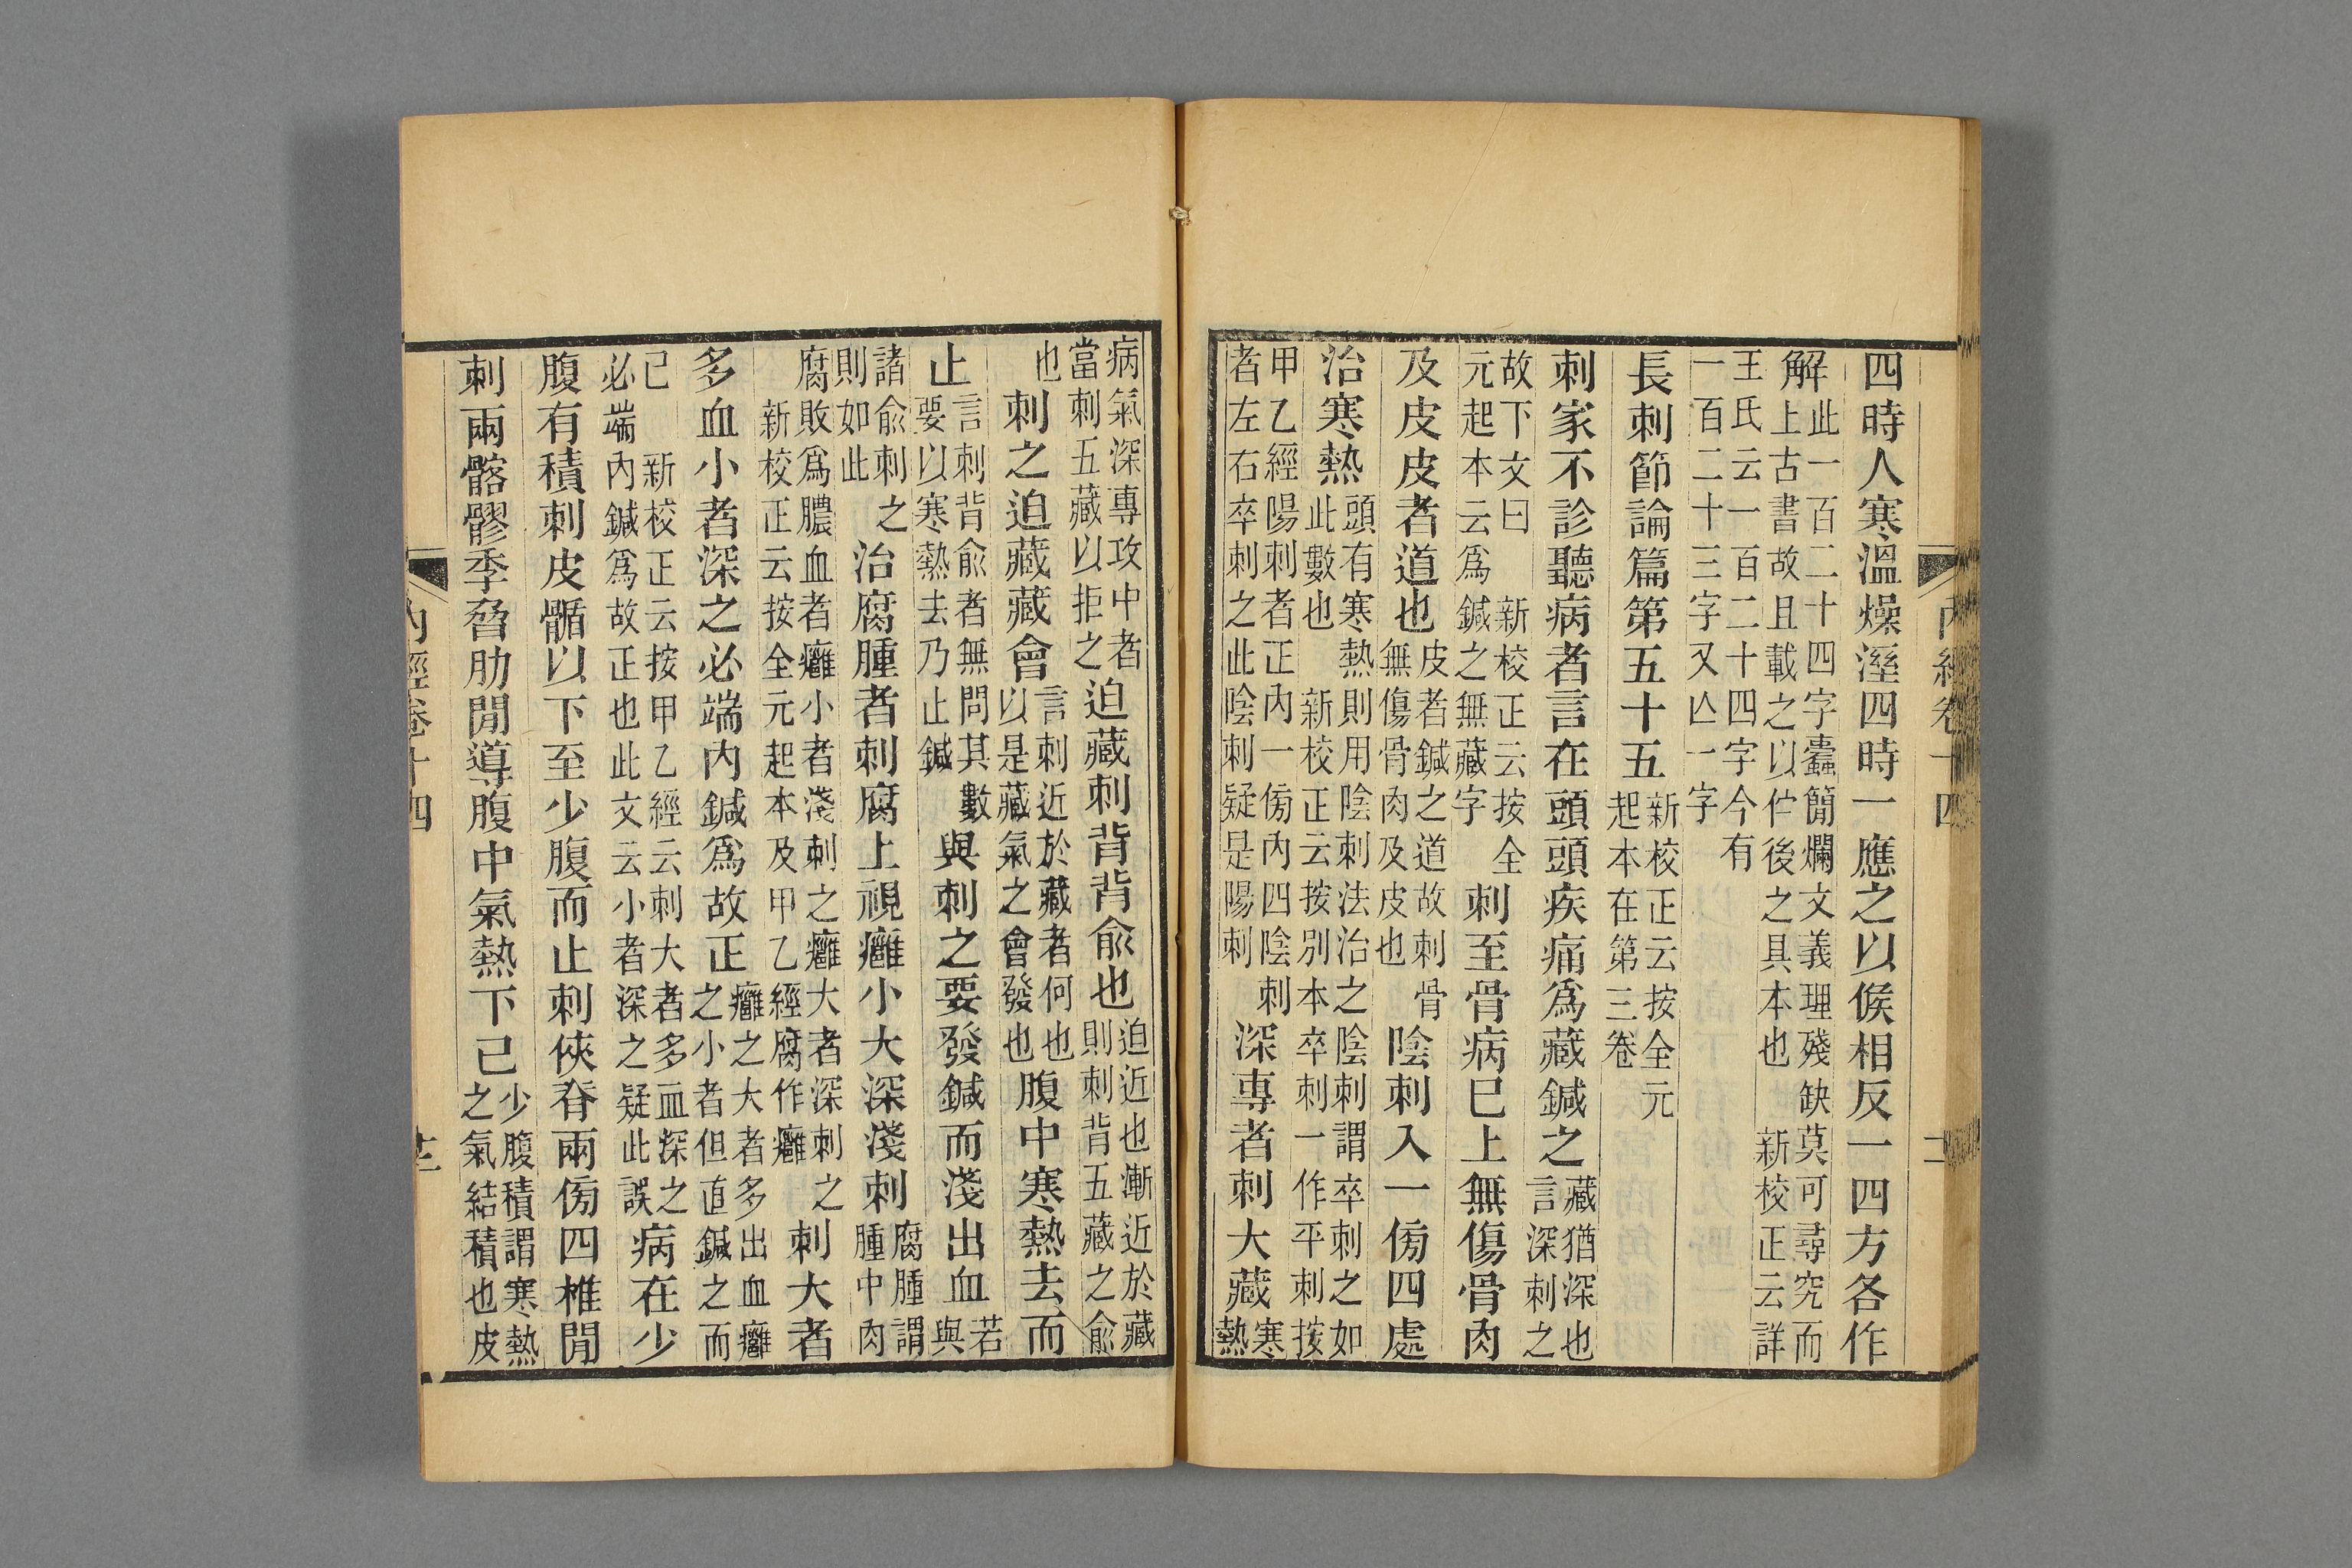 四時人寒溫燥溼四時一應之以候相反一四方各作
解此一百二十四字蠹簡爛文義理殘缺莫可尋究而上古書故且載之以佇後之具本也 新校正云詳
王氏云一百二十四字今有一百二十三字又亾一字
長刺節論篇第五十五新校正云按全元起本在第三卷
刺家不診聽病者言在頭頭疾痛爲藏鍼之藏猶深也言深刺之
故下文曰 新校正云按全元起本云爲鍼之無藏字刺至骨病已上無傷骨肉
及皮皮者道也皮者鍼之道故刺骨無傷骨肉及皮也陰刺入一傍四處
治寒熱頭有寒熱則用陰刺法治之陰刺謂卒刺之如此數也 新校正云按別本卒刺一作平刺按
甲乙經陽刺者正內一傍內四陰刺者左右卒刺之此陰刺疑是陽刺深專者刺大藏寒熱
病氣深專攻中者當刺五藏以拒之迫藏刺背背俞也迫近也漸近於藏則刺背五藏之俞
也刺之迫藏藏會言刺近於藏者何也以是藏氣之會發也腹中寒熱去而
止言刺背俞者無問其數要以寒熱去乃止鍼與刺之要發鍼而淺出血若與
諸俞刺之則如此治腐腫者刺腐上視癰小大深淺刺腐腫謂腫中肉
腐敗爲膿血者癰小者淺刺之癰大者深刺之 新校正云按全元起本及甲乙經腐作癰刺大者
多血小者深之必端內鍼爲故正癰之大者多出血癰之小者但直鍼之而
已 新校正云按甲乙經云刺大者多血深之必端內鍼爲故正也此文云小者深之疑此誤病在少
腹有積刺皮䯏以下至少腹而止刺俠脊兩傍四椎閒
刺兩髂髎季脅肋閒導腹中氣熱下已少腹積謂寒熱之氣結積也皮
內經卷十四